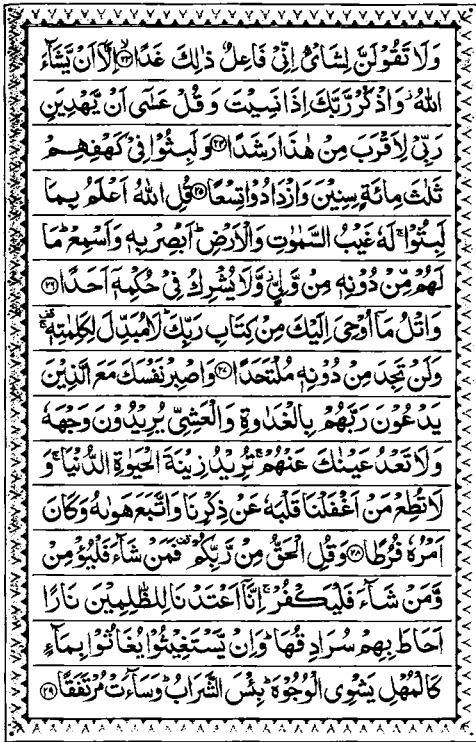 وَلَا تَقُوْلَنَّ لِشَایْءٍ اِنِّیْ فَاعِلٌ ذٰلِكَ غَدًا ۝۲۳ اِلَّاۤ اَنْ یَّشَآءَ
اللّٰهُ ؗ وَاذْكُرْ رَّبَّكَ اِذَا نَسِیْتَ وَ قُلْ عَسٰۤی اَنْ یَّهْدِیَنِ
رَبِّیْ لِاَقْرَبَ مِنْ هٰذَا رَشَدًا ۝۲۴ وَ لَبِثُوْا فِیْ كَهْفِهِمْ
ثَلٰثَ مِائَةٍ سِنِیْنَ وَازْدَادُوْا تِسْعًا ۝۲۵ قُلِ اللّٰهُ اَعْلَمُ بِمَا
لَبِثُوْا ۚ لَهٗ غَیْبُ السَّمٰوٰتِ وَ الْاَرْضِ ؕ اَبْصِرْ بِهٖ وَ اَسْمِعْ ؕ مَا
لَهُمْ مِّنْ دُوْنِهٖ مِنْ وَّلِیٍّ ؗ وَّ لَا یُشْرِكُ فِیْ حُكْمِهٖۤ اَحَدًا ۝۲۶
وَاتْلُ مَاۤ اُوْحِیَ اِلَیْكَ مِنْ كِتَابِ رَبِّكَ ؕ لَا مُبَدِّلَ لِكَلِمٰتِهٖ ۚ۫
وَلَنْ تَجِدَ مِنْ دُوْنِهٖ مُلْتَحَدًا ۝۲۷ وَاصْبِرْ نَفْسَكَ مَعَ الَّذِیْنَ
یَدْعُوْنَ رَبَّهُمْ بِالْغَدٰوةِ وَ الْعَشِیِّ یُرِیْدُوْنَ وَجْهَهٗ
وَ لَا تَعْدُ عَیْنٰكَ عَنْهُمْ ۚ تُرِیْدُ زِیْنَةَ الْحَیٰوةِ الدُّنْیَا ۚ وَ
لَا تُطِعْ مَنْ اَغْفَلْنَا قَلْبَهٗ عَنْ ذِكْرِنَا وَاتَّبَعَ هَوٰىهُ وَ كَانَ
اَمْرُهٗ فُرُطًا ۝۲۸ وَقُلِ الْحَقُّ مِنْ رَّبِّكُمْ ۫ فَمَنْ شَآءَ فَلْیُؤْمِنْ
وَّمَنْ شَآءَ فَلْیَكْفُرْ ۙ اِنَّاۤ اَعْتَدْنَا لِلظّٰلِمِیْنَ نَارًا ۙ
اَحَاطَ بِهِمْ سُرَادِقُهَا ؕ وَ اِنْ یَّسْتَغِیْثُوْا یُغَاثُوْا بِمَآءٍ
كَالْمُهْلِ یَشْوِی الْوُجُوْهَ ؕ بِئْسَ الشَّرَابُ ؕ وَسَآءَتْ مُرْتَفَقًا ۝۲۹